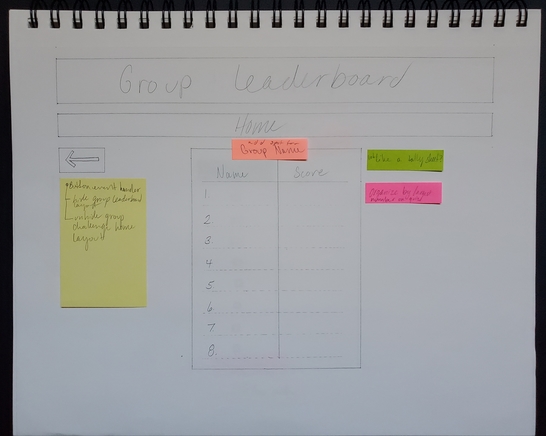 Group Leaderboard
Home
add spot for
Group Name
Name Score
1
2.
3.
4
5
6
7
8.
Button event handler
hide group leaderboard
layout
unhide group
challenge home
layout
Like a tally sheet
organize by